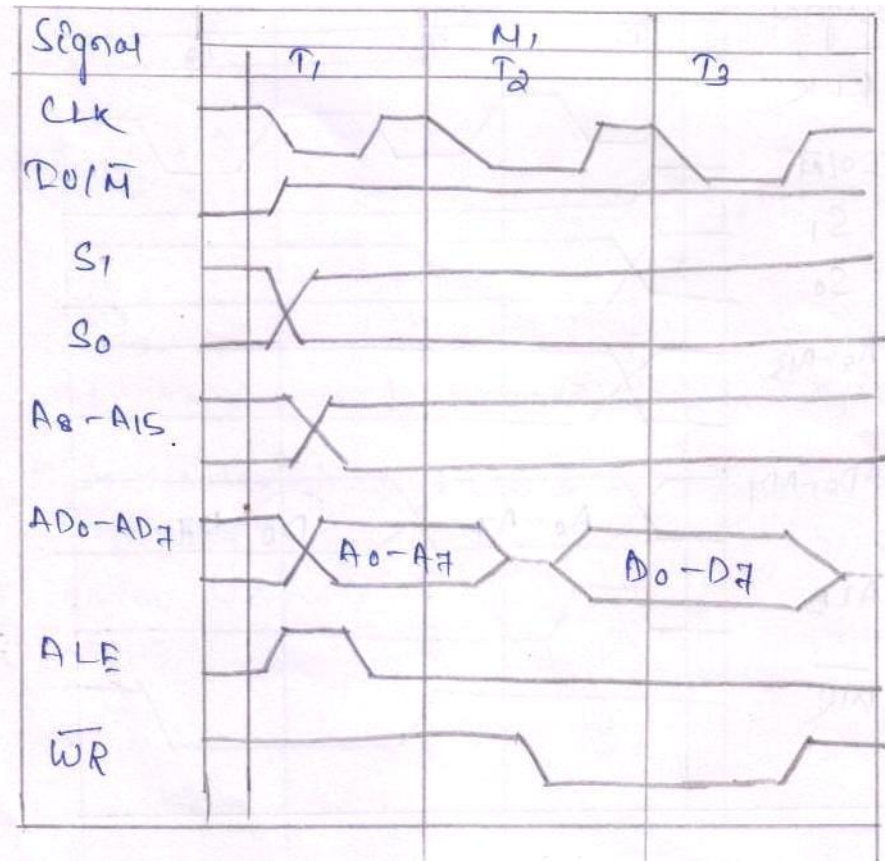 Signal M1
T1 T2 T3
CLK
IO/M̅
S1
S0
A8-A15.
AD0-AD7 A0-A7 D0-D7
ALE
W̅R̅